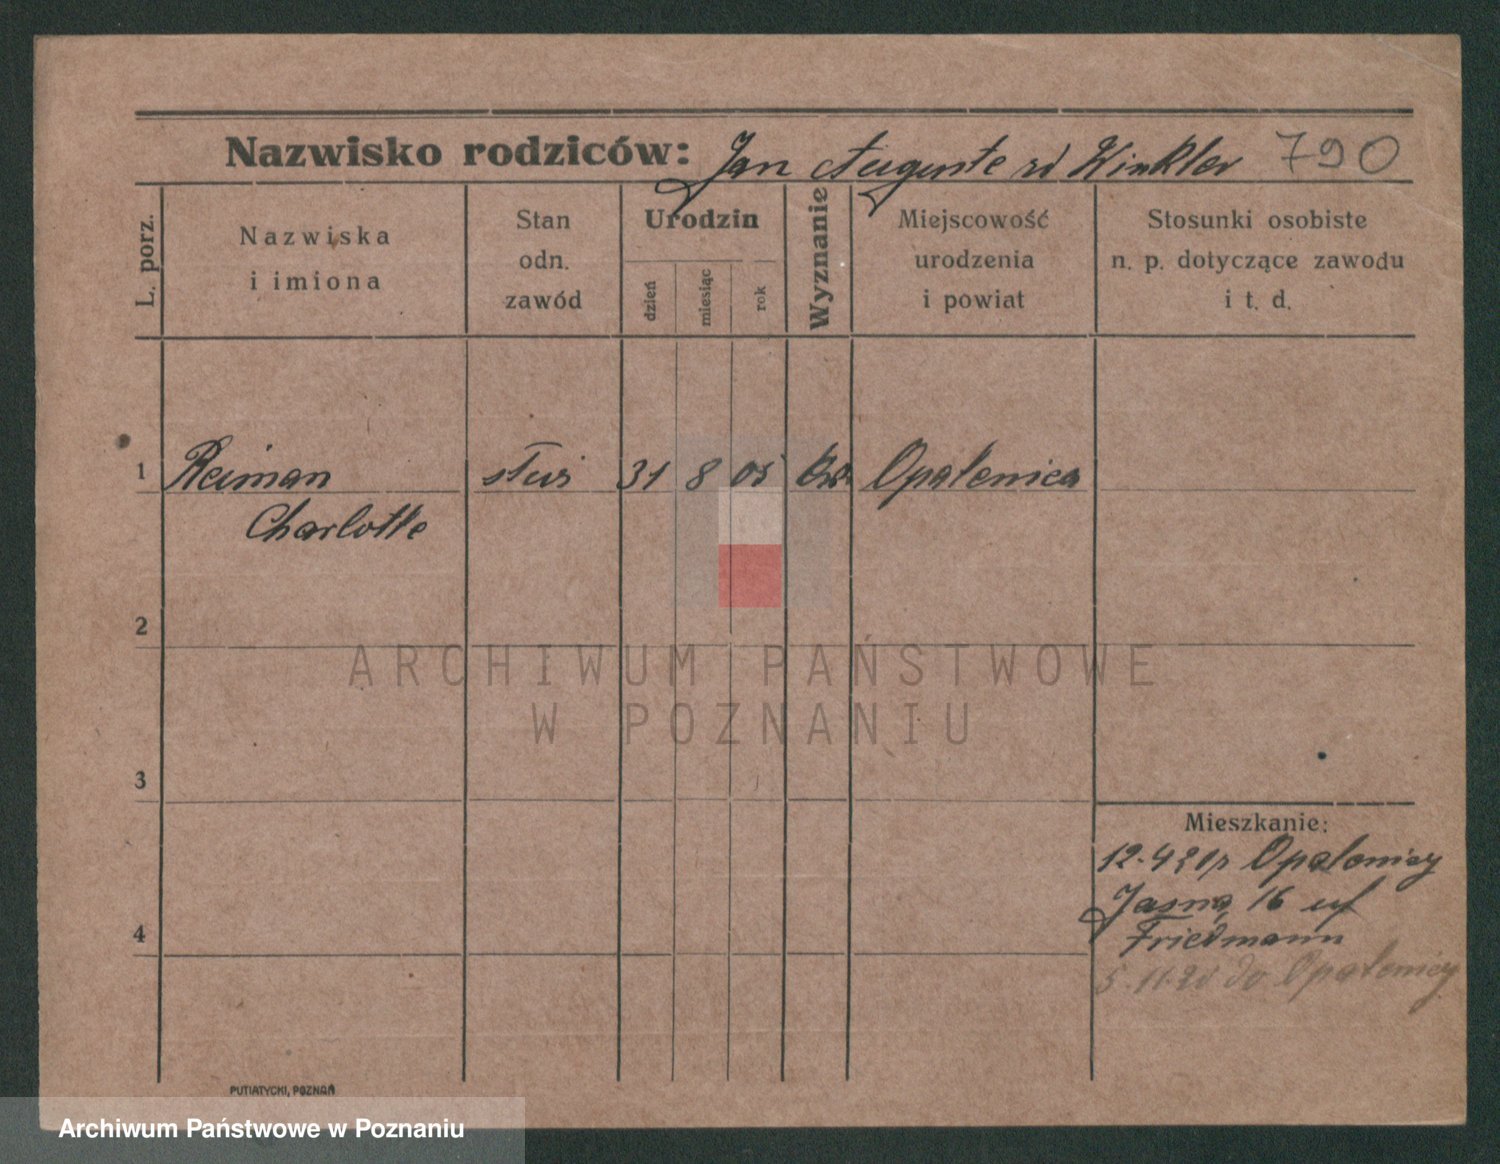 Nazwisko rodziców: Jan Auguste zd Winkler 790
L. porz.
Nazwiska
i imiona
Stan
odn.
zawód
Urodzin
dzień
miesiąc
rok
Wyznanie
Miejscowość
urodzenia
i powiat
Stosunki osobiste
n. p. dotyczące zawodu
i t. d.
1 Reiman 31 8 05 Opalenica
Charlotte
2
ARCHIWUM PAŃSTWOWE
W POZNANIU
3
Mieszkanie:
12.4 Opalenicy
Jasna 16
4
Friedmann
5.11. do Opalenicy
PUTIATYCKI, POZNAŃ
Archiwum Państwowe w Poznaniu